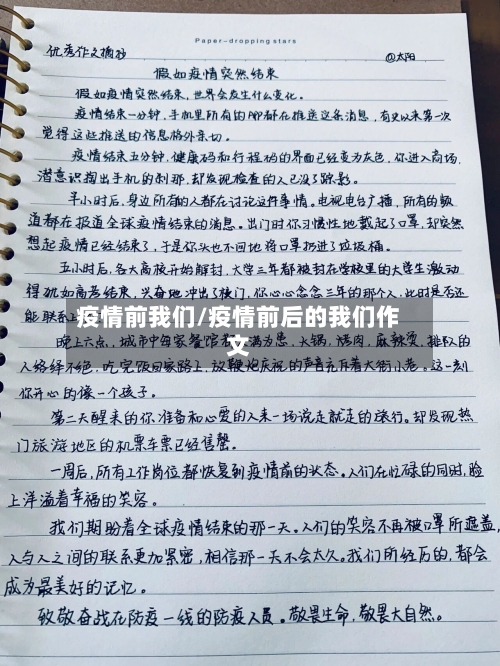 Paper-dropping stars
优秀作文摘抄
@太阳
假如疫情突然结束
假如疫情突然结束,世界会发生什么变化。
疫情结束一分钟,手机里所有的APP都在推送这条消息,有史以来第一次
觉得这些推送的信息格外亲切。
疫情结束五分钟,健康码和行程码的界面已经变为灰色,你进入商场,
潜意识掏出手机的刹那,却发现检查的人已没了踪影。
半小时后,身边所有的人都在讨论这件事情。电视电台广播,所有的频
道都在报道全球疫情结束的消息。出门时你习惯性地戴起了口罩,却突然
想起疫情已经结束了,于是你头也不回地将口罩扔进了垃圾桶。
五小时后,各大高校开始解封,大学三年都被封在学校里的大学生激动
得犹如高考结束,兴奋地冲出了校门,你心心念念三年的那个人,此时是否还
能联系
疫情前我们/疫情前后的我们作
文
晚上六点,城市中每家餐馆都 满为患,火锅,烤肉,麻辣烫,排队的
人络绎不绝,吃完饭回家路上,放鞭炮庆祝的声音充斥着大街小巷。这一刻
你开心的像一个孩子。
第二天醒来的你准备和心爱的人来一场说走就走的旅行。却发现热
门旅游地区的机票车票已经售罄。
一周后,所有工作岗位都恢复到疫情前的状态。人们在忙碌的同时,脸
上洋溢着幸福的笑容。
我们期盼着全球疫情结束的那一天。人们的笑容不再被口罩所遮盖,
人与人之间的联系更加紧密,相信那一天不会太久。我们所经历的,都会
成为最美好的记忆。
致敬奋战在防疫一线的防疫人员。敬畏生命,敬畏大自然。